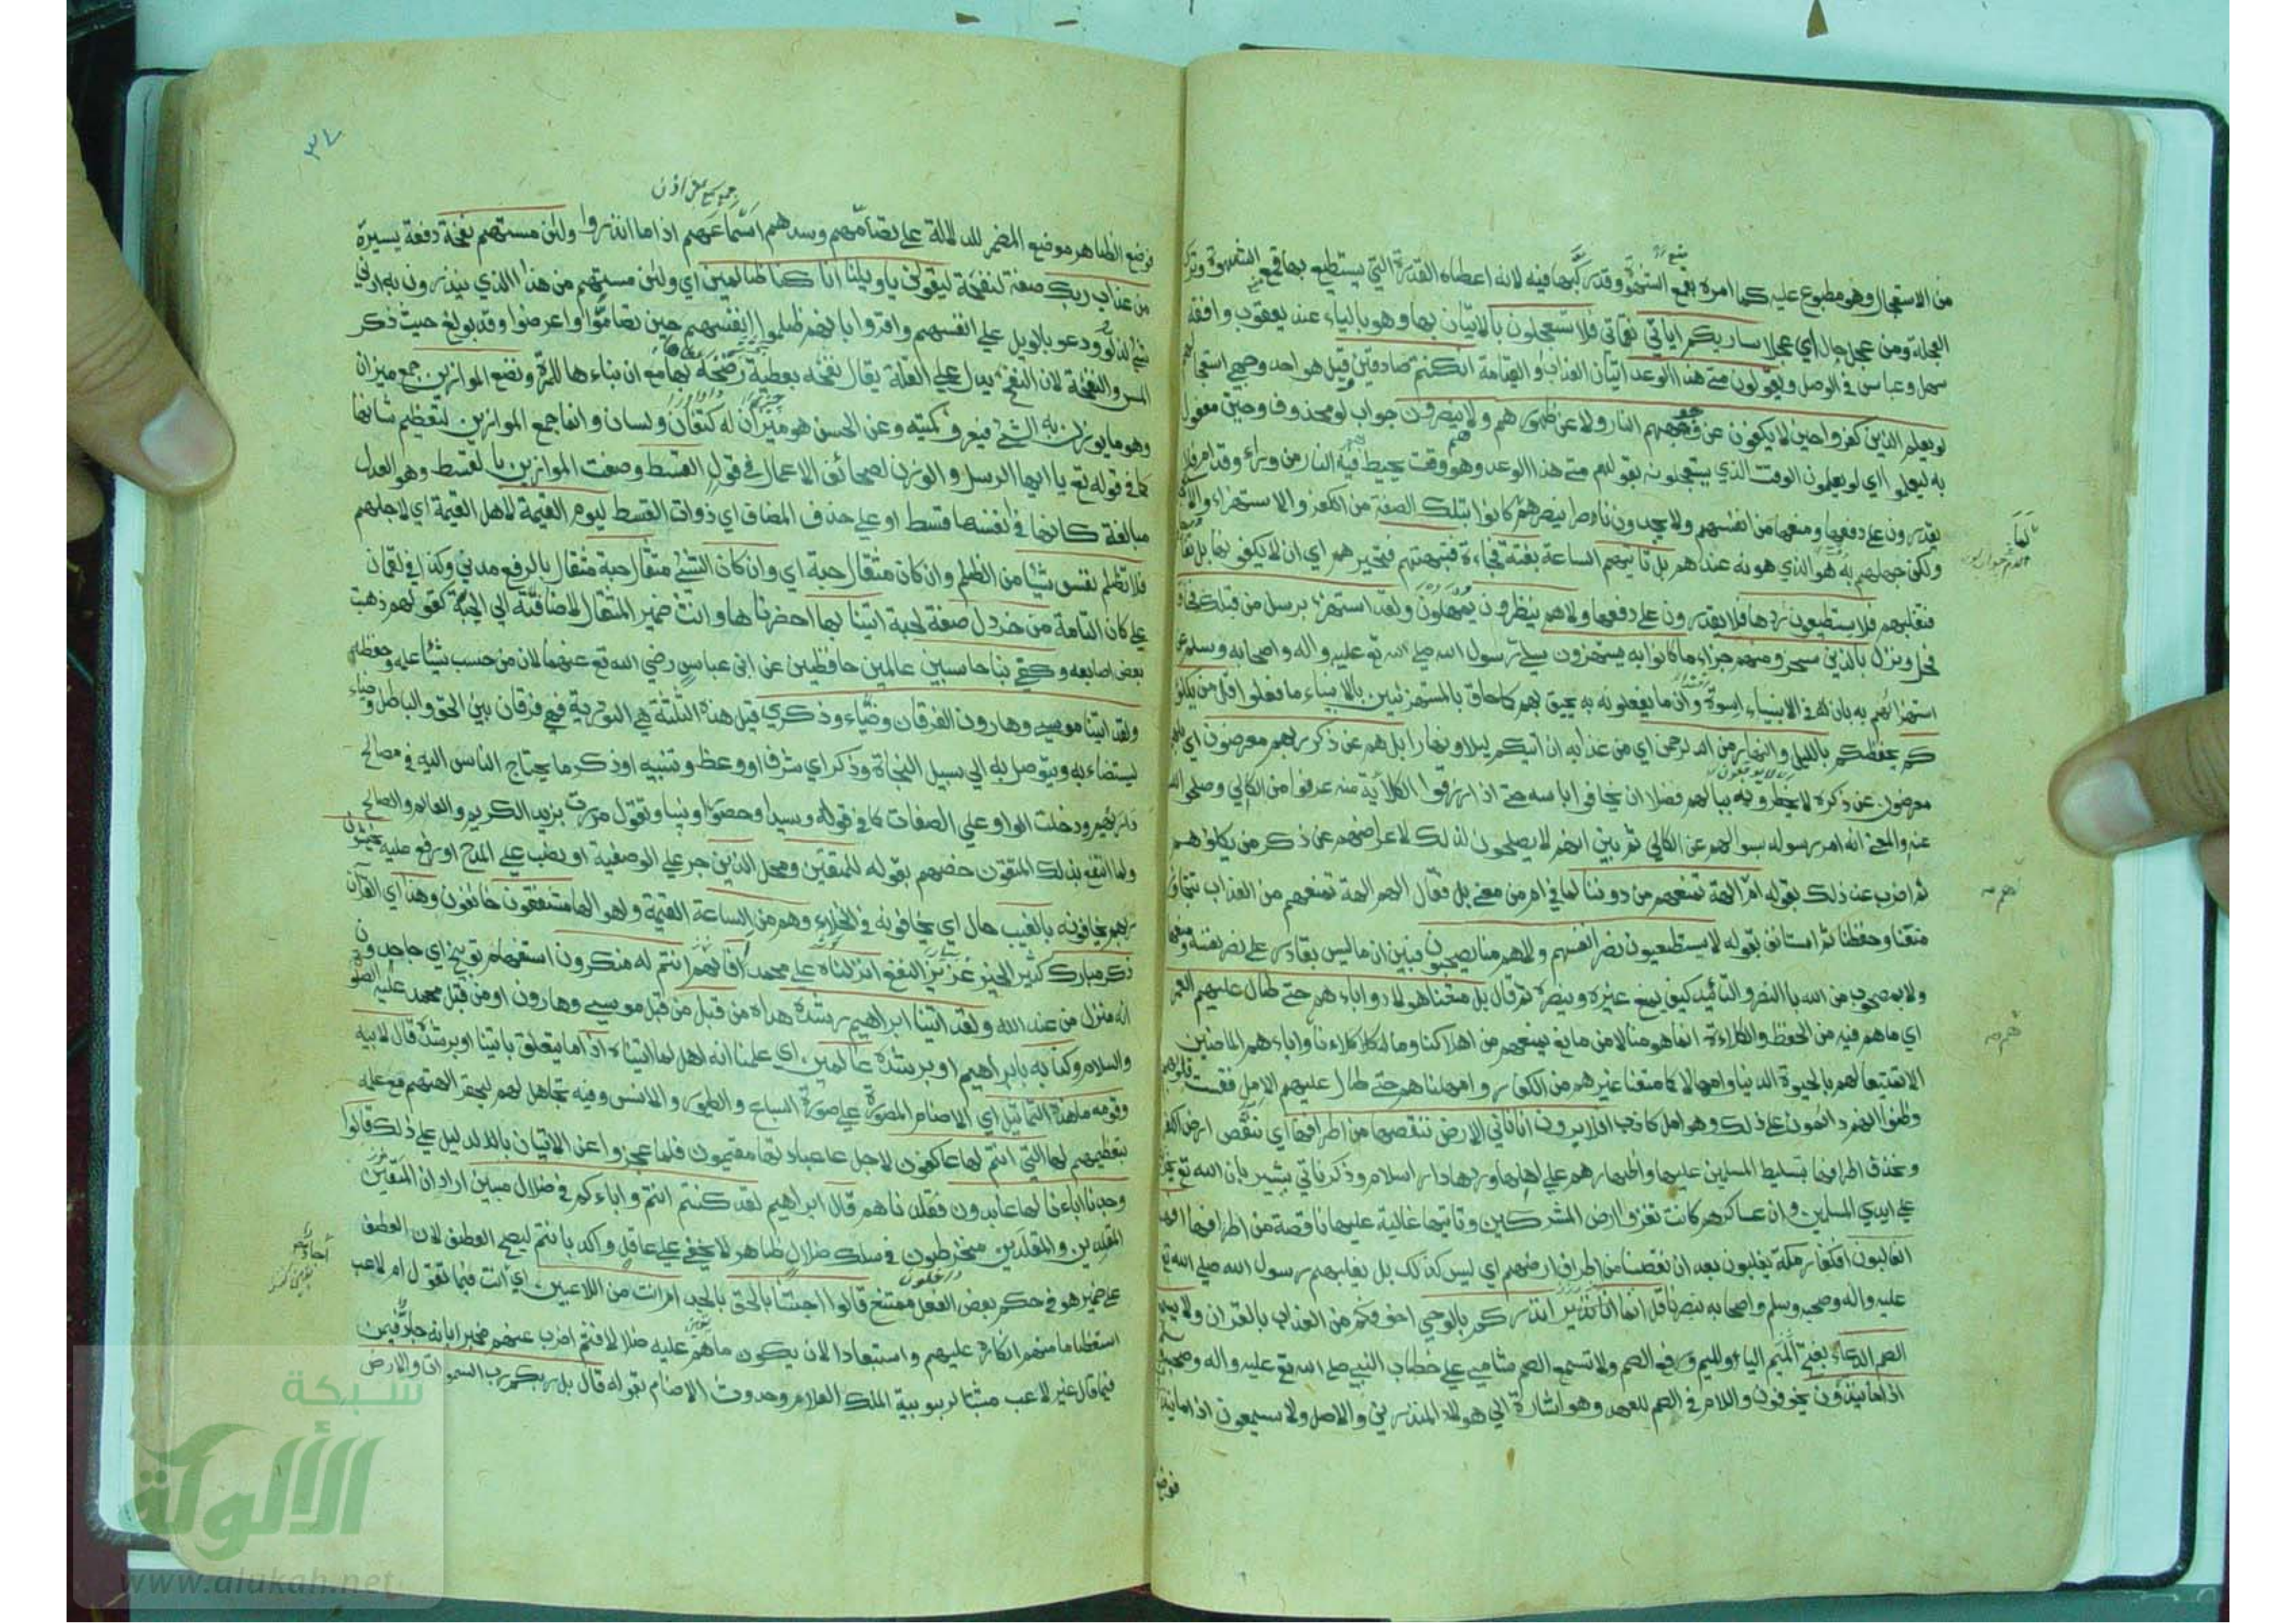 من الاستعجال وهو مطبوع عليه كما امره بقمع الشهوة وقد ركبها فيه لانه اعطاه القدرة التي يستطيع بها قمع الشهوة وترك
العجلة ومن عجل حال اي عجلا ساريكم اياتي نقماتي فلا تستعجلون بالاتيان بها وهو بالياء عند يعقوب وافقه
سهل وعباس في الوصل ويقولون متى هذا الوعد اتيان العذاب او القيامة ان كنتم صادقين قيل هو احد وجهي استعجالهم
لو يعلم الذين كفروا حين لا يكفون عن وجوههم النار ولا عن ظهورهم ولا هم ينصرون جواب لو محذوف وحين مفعول
به ليعلم اي لو يعلمون الوقت الذي يستعجلونه بقولهم متى هذا الوعد وهو وقت يحيط بهم فيه النار من وراء وقدام فلا
يقدرون على دفعها ومنعها من انفسهم ولا يجدون ناصرا ينصرهم لما كانوا بتلك الصفة من الكفر والاستهزاء
ولكن جهلهم به هو الذي هونه عندهم بل تاتيهم الساعة بغتة فجاءة فتبهتهم فتحيرهم اي ان لا يكفونها بل
فتغلبهم فلا يستطيعون ردها فلا يقدرون على دفعها ولا هم ينظرون يمهلون ولقد استهزئ برسل من قبلك فحاق
فحل ونزل بالذين سخروا منهم جزاء ما كانوا به يستهزؤن سلى رسول الله صلى الله تع عليه واله واصحابه وسلم عن
استهزائهم به بان له في الانبياء اسوة وان ما يفعلونه به يحيق بهم كما حاق بالمستهزئين بالانبياء ما فعلوا قل من يكلؤ
كم يحفظكم بالليل والنهار من الرحمن اي من عذابه ان اتيكم ليلا او نهارا بل هم عن ذكر ربهم معرضون اي بل هم
معرضون عن ذكره لا يخطرونه ببالهم فضلا ان يخافوا باسه حتى اذا رزقوا الكلاءة منه عرفوا من الكالئ وصلحوا
عنه والمعنى انه امر رسوله بسوالهم عن الكالئ ثم بين انهم لا يصلحون لذلك لاعراضهم عن ذكر من يكلؤهم
ثم اضرب عن ذلك بقوله ام لهم الهة تمنعهم من دوننا لما في ام من معنى بل فقال الهم الهة تمنعهم من العذاب تتجاوز
منعنا وحفظنا ثم استانف بقوله لا يستطيعون نصر انفسهم ولا هم منا يصحبون فبين ان ما ليس بقادر على نصر نفسه ومنعها
ولا بمصحوب من الله بالنصر والتائيد كيف يمنع غيره وينصره ثم قال بل متعنا هؤلاء واباءهم حتى طال عليهم العمر
اي ما هم فيه من الحفظ والكلاءة انما هو منا لا من مانع يمنعهم من اهلاكنا وما كلاناهم واباءهم الماضين
الا تمتيعا لهم بالحيوة الدنيا وامهالا كما متعنا غيرهم من الكفار وامهلناهم حتى طال عليهم الامل فقست قلوبهم
وظنوا انهم دائمون على ذلك وهو امل كاذب افلا يرون انا ناتي الارض ننقصها من اطرافها اي ننقص ارض الكفر
ونحذف اطرافها بتسليط المسلمين عليها واظهارهم على اهلها وردها دار اسلام وذكر ناتي يشير بان الله تع يجريه
على ايدي المسلمين وان عساكرهم كانت تغزو ارض المشركين وتاتيها غالبة عليها ناقصة من اطرافها افهم
الغالبون افكفار مكة يغلبون بعد ان نقصنا من اطراف ارضهم اي ليس كذلك بل يغلبهم رسول الله صلى الله تع
عليه واله وصحبه وسلم واصحابه بنصرنا قل انما انذركم بالوحي اخوفكم من العذاب بالقران ولا يسمع
الصم الدعاء بفتح الياء والميم ورفع الصم ولا تسمع الصم شامي على خطاب النبي صلى الله تع عليه واله وصحبه
اذا ما ينذرون يخوفون واللام في الصم للعهد وهو اشارة الى هؤلاء المنذرين والاصل ولا يسمعون اذا ما ينذرون
فوضع
٣٤
فوضع الظاهر موضع المضمر للدلالة على تصامهم وسدهم اسماعهم اذا ما انذروا ولئن مستهم نفحة دفعة يسيرة
من عذاب ربك صفة لنفحة ليقولن يا ويلنا انا كنا ظالمين اي ولئن مستهم من هذا الذي ينذرون به ادنى
شئ لذلوا ودعوا بالويل على انفسهم واقروا بانهم ظلموا انفسهم حين تصاموا واعرضوا وقد بولغ حيث ذكر
المس والنفحة لان النفح يدل على القلة يقال نفحه بعطية رضخه بها مع ان بناءها للمرة ونضع الموازين جمع ميزان
وهو ما يوزن به الشئ فيعرف كميته وعن الحسن هو ميزان له كفتان ولسان وانما جمع الموازين لتعظيم شانها
كما في قوله تع يا ايها الرسل والوزن لصحائف الاعمال في قول القسط وصفت الموازين بالقسط وهو العدل
مبالغة كانها في انفسها قسط او على حذف المضاف اي ذوات القسط ليوم القيمة لاهل القيمة اي لاجلهم
فلا تظلم نفس شيئا من الظلم وان كان مثقال حبة اي وان كان الشئ مثقال حبة مثقال بالرفع مدني وكذا في لقمان
على كان التامة من خردل صفة لحبة اتينا بها احضرناها وانث ضمير المثقال لاضافته الى الحبة كقولهم ذهبت
بعض اصابعه وكفى بنا حاسبين عالمين حافظين عن ابن عباس رضي الله تع عنهما لان من حسب شيئا علمه وحفظه
ولقد اتينا موسى وهارون الفرقان وضياء وذكرى قيل هذه الثلثة هي التورية فهي فرقان بين الحق والباطل وضياء
يستضاء به ويتوصل به الى سبيل النجاة وذكر اي شرف او وعظ وتنبيه او ذكر ما يحتاج الناس اليه في مصالح
دينهم ودخلت الواو على الصفات كما في قوله وسيدا وحصورا ونبيا وتقول مررت بزيد الكريم والعالم والصالح
ولما انتفع بذلك المتقون خصهم بقوله للمتقين ومحل الذين جر على الوصفية او نصب على المدح او رفع عليه يخشون
ربهم يخافونه بالغيب حال اي يخافونه في الخلاء وهم من الساعة القيمة واهوالها مشفقون خائفون وهذا اي القرآن
ذكر مبارك كثير الخير غزير النفع انزلناه على محمد افانتم له منكرون استفهام توبيخ اي جاحدون
انه منزل من عند الله ولقد اتينا ابراهيم رشده هداه من قبل من قبل موسى وهارون او من قبل محمد عليه الصلوة
والسلام وكنا به بابراهيم او برشده عالمين اي علمنا انه اهل لما اتيناه اذ اما يتعلق باتينا او برشده قال لابيه
وقومه ما هذه التماثيل اي الاصنام المصورة على صورة السباع والطيور والانس وفيه تجاهل لهم ليحقر الهتهم مع علمه
بتعظيمهم لها التي انتم لها عاكفون لاجل عبادتها مقيمون فلما عجزوا عن الاتيان بالدليل على ذلك قالوا
وجدنا اباءنا لها عابدين فقلدناهم قال ابراهيم لقد كنتم انتم واباءكم في ضلال مبين اراد ان المقلدين
والمقلدين منخرطون في سلك ضلال ظاهر لا يخفى على عاقل واكد بانتم ليصح العطف لان العطف
على ضمير هو في حكم بعض الفعل ممتنع قالوا اجئتنا بالحق بالجد ام انت من اللاعبين اي انت فيما تقول ام لاعب
استعظاما منهم انكاره عليهم واستبعادا لان يكون ما هم عليه ضلالا فثم اضرب عنهم مخبرا بانه جاد
فيما قال غير لاعب مثبتا لربوبية الملك العلام وحدوث الاصنام بقوله قال بل ربكم رب السموات والارض
شبكة
الألوكة
www.alukah.net